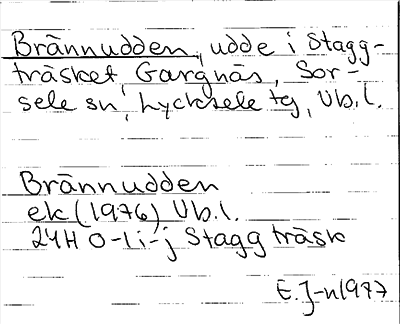 Brännudden, udde i Stagg-
träsket, Gargnäs, Sor-
sele sn, Lycksele tg, Vb.l.
Brännudden
ek (1976) Vb.l.
24H 0-1i-j Staggträsk
E.J-n 1977